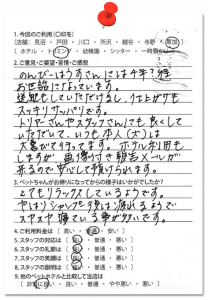 1.今回のご利用(○印を)
[店舗: 見沼 ・ 戸田 ・ 川口 ・ 所沢 ・ 越谷 ・ 与野 ・ 草加]
[ ホテル ・ トリミング ・ 幼稚園 ・ シッター ・ 一時預かり
2.ご意見・ご要望・苦情・ご感想
のんびーはうすさんには4年?程
お世話になっています。
送迎もしていただけるし、仕上がりも
スッキリサッパリです。
トリマーさんやスタッフさんにも良くして
いただいて、いつも本人(犬)は
大喜びで行ってます。ホテル利用も
しますが、画像付き報告メールが
来るので安心して預けられます。
3.ペットちゃんがお帰りになってからの様子はいかがでしたか?
とてもリラックスしているようです。
やはりシャンプー後は疲れるようで
スヤスヤ寝ている事が多いです。
4.ご利用料金は ( 高い ・ 普通 ・ 安い )
5.スタッフの対応は ( 良い ・ 普通 ・ 悪い )
6.スタッフの礼節は ( 良い ・ 普通 ・ 悪い )
7.スタッフの笑顔は ( 良い ・ 普通 ・ 悪い )
8.スタッフの質問は ( 良い ・ 普通 ・ 悪い )
9.他のペットホテルと比較して当店は
[ 非常に良い ・ 良い ・ 普通 ・ やや悪い ・ 悪い ]